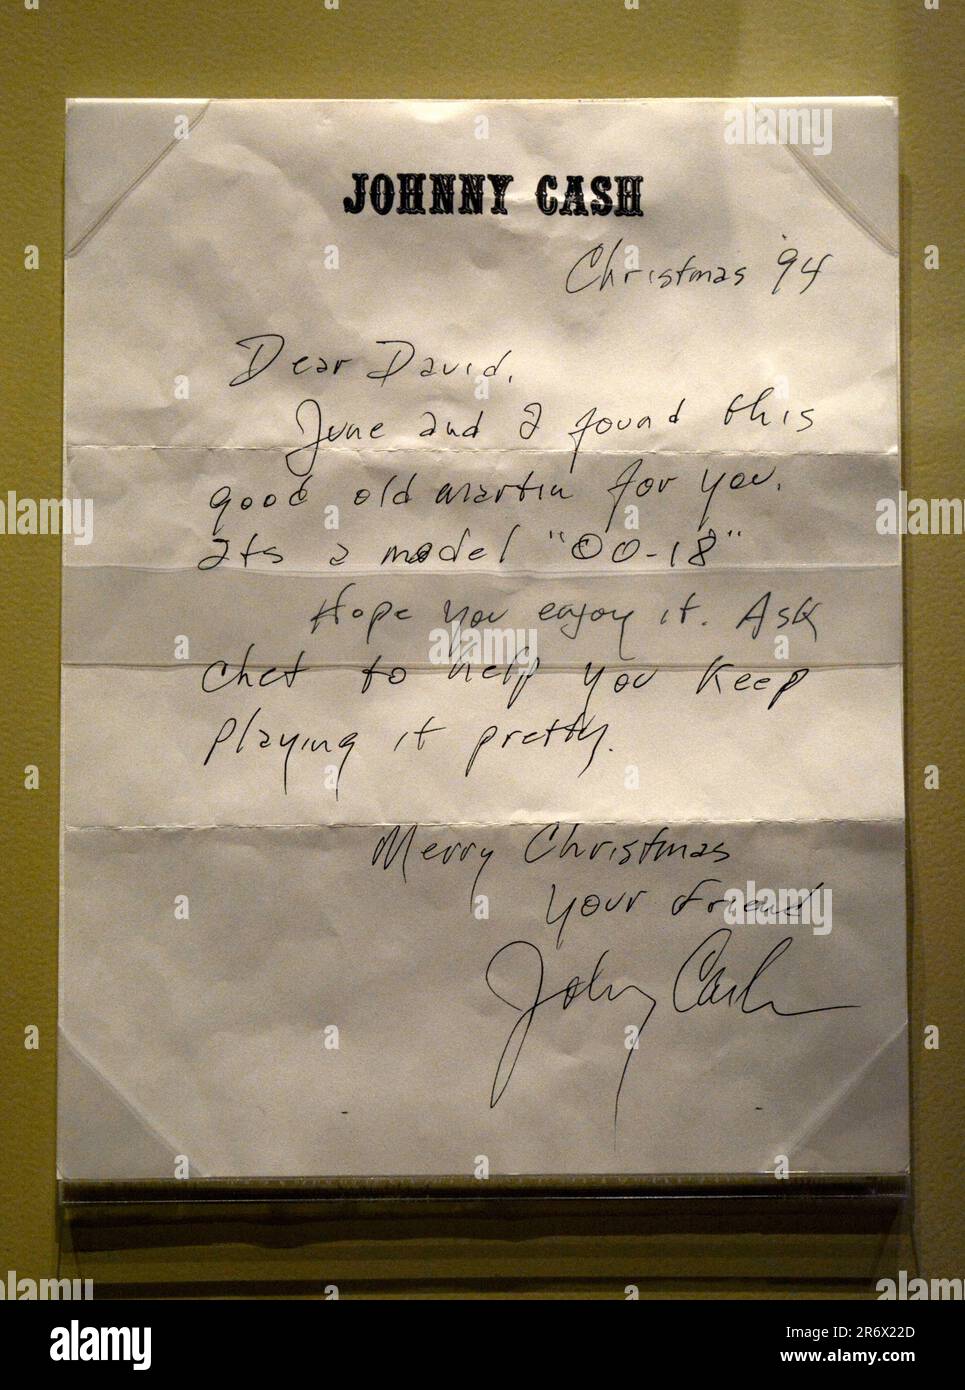 JOHNNY CASH
Christmas '94
Dear David,
June and I found this
good old martin for you.
Its a model "00-18"
Hope you enjoy it. Ask
Chet to help you keep
playing it pretty.
Merry Christmas
your friend
Johnny Cash
alamy
Image ID: 2R6X22D
www.alamy.com